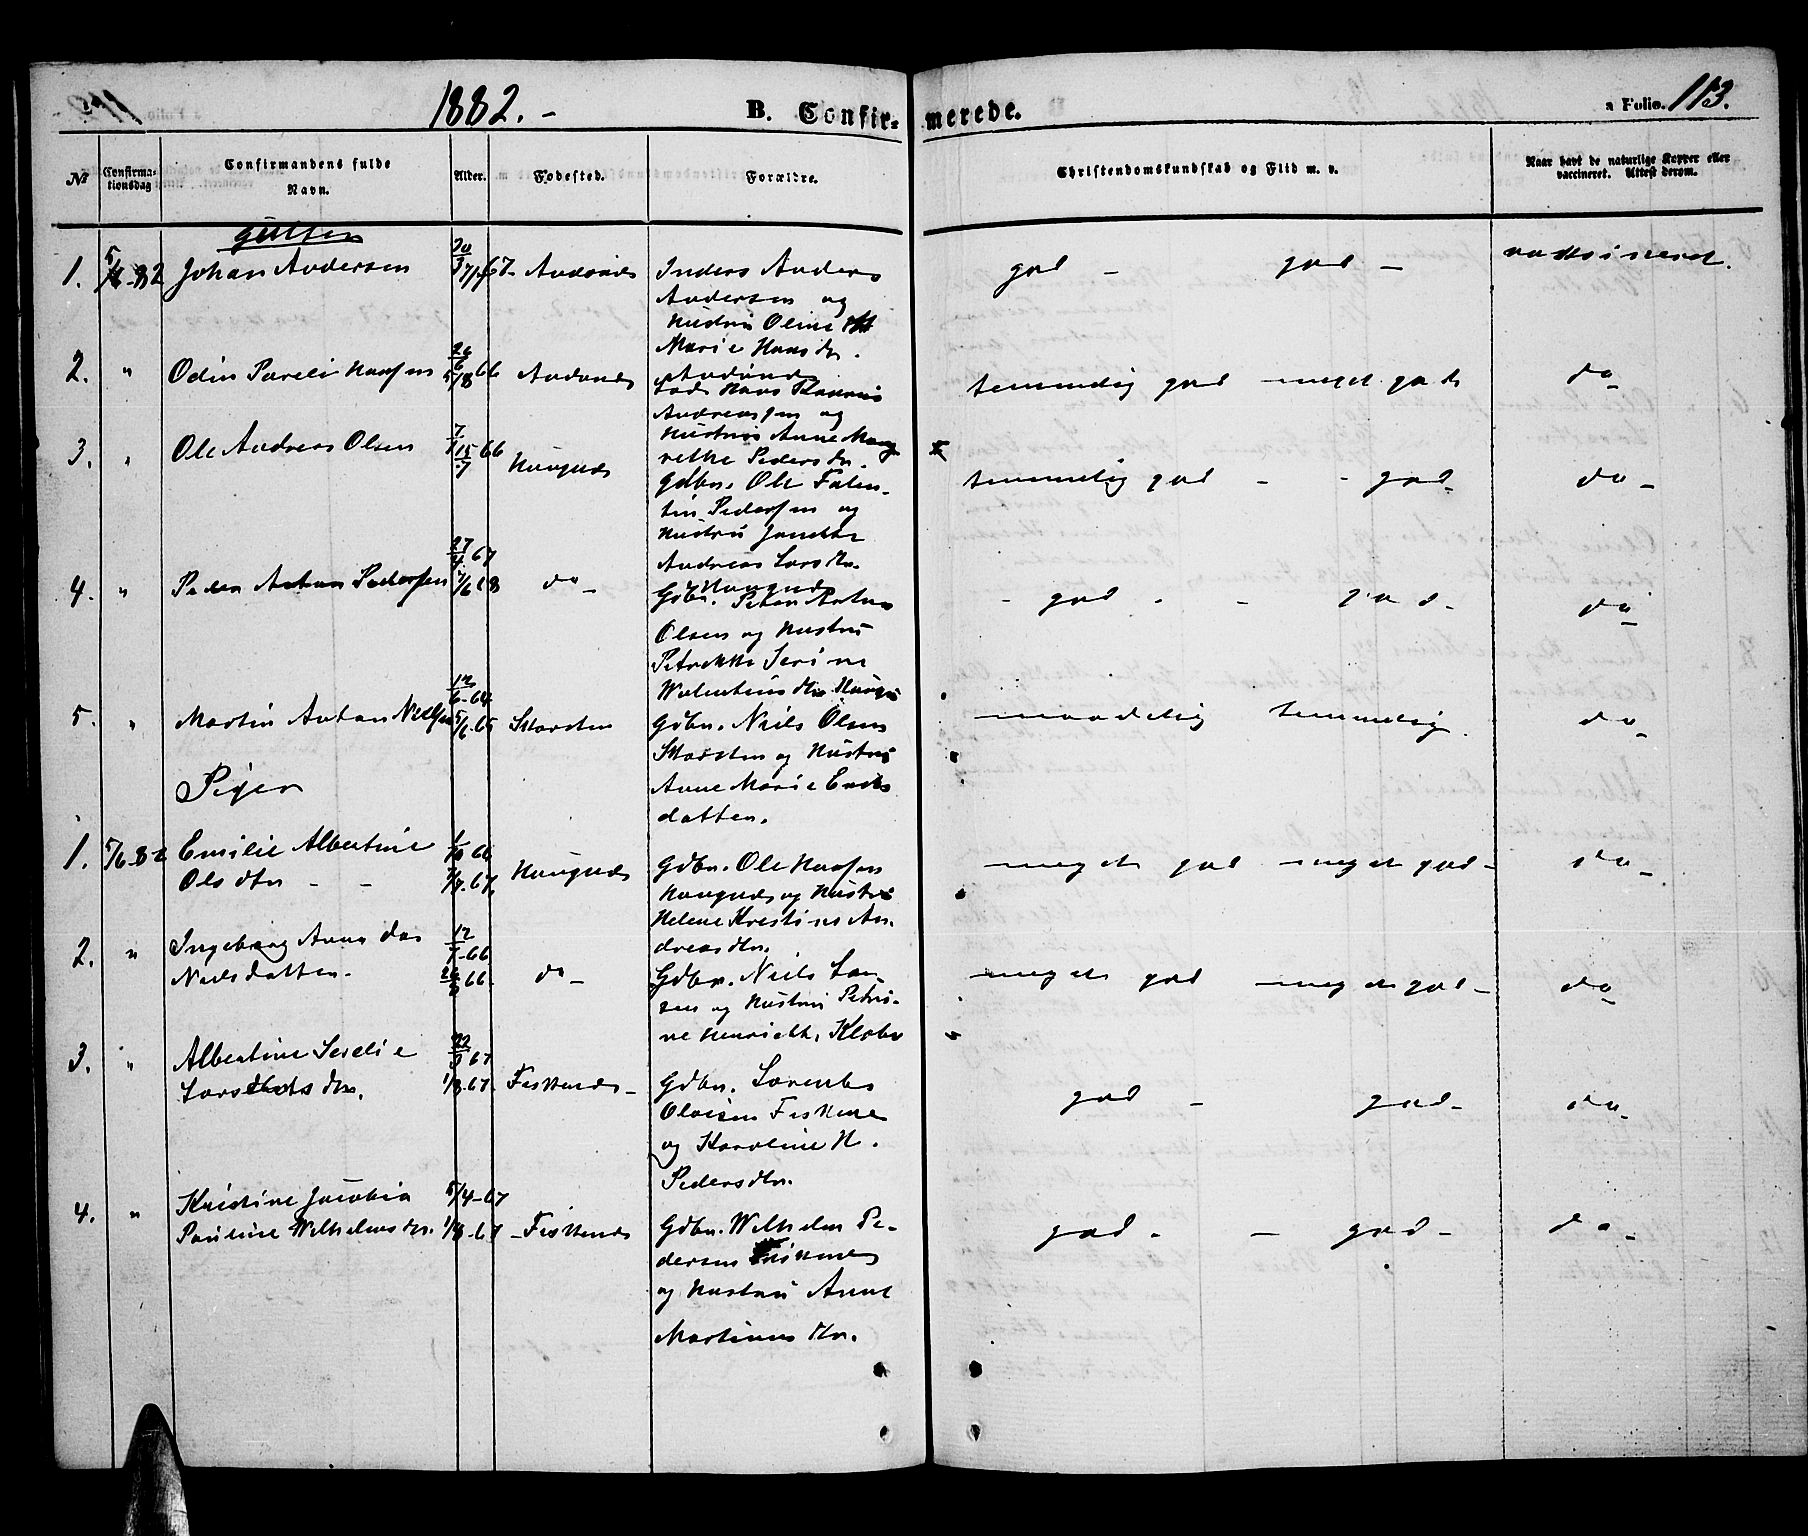 1882. -
B. Confir-
merede.
a Folio. 113.
No
Confirma-
tionsdag
Confirmandens fulde
Navn.
Alder.
Fødested.
Forældre.
Christendomskundskab og Flid m. v.
Naar havt de naturlige Kopper eller
vaccineret. Attest derom.
Gutter
1. 5/6-82 Johan Andersen
Anders
Andersen og
Hustru Oline
Marie Hansdtr.
god - god -
2. " Odin Pareli Hansen
Hans
Andreassen og
Hustru Anne Marg
rethe Pedersdtr.
temmelig god meget god do
3. " Ole Andreas Olsen
7/1 66
15/7
Haugnæs
Gdbr. Ole Falen-
tin Pedersen og
Hustru
Andrea Larsdtr.
Haugnæs
temmelig god - - god - do -
4. " Peder Anton Pedersen
27/4 67
do -
Gdbr. Peter Anton
Olsen og Hustru
Petrikke Serine
- god - - god - do -
5. " Martin Anton Nielsen
12/6-64
5/6-65
Skarsten
Gdbr. Niels Olsen
Skarsten og Hustru
Anne Marie
datter.
maadelig temmelig. do -
Piger
1. 5/6-82 Emilie Albertine
Olsdtr - -
Haugnæs
Gdbr. Ole Hansen
Haugnæs og Hustru
Helene Kristine An-
dreasdtr.
meget god meget god - do -
2. " Ingeborg Anna
Nielsdatter.
12/7-66
26/8 66
do -
Gdbr. Niels Lar-
sen og Hustru Petri-
ne Henrikke
meget god meget god - do -
3. " Albertine
Larsdtr.
22/3 67
Fiskenæs -
Gdbr. Lorents
Olsen Fiskenæs
og Karoline H.
Pedersdtr.
god - god - do -
4. " Kristine Jacobia
Pauline Wilhelmsdtr.
5/4-67
Fiskenæs
Gdbr. Wilhelm Pe-
dersen Fiskenæs
og Hustru Anne
Martinusdtr.
god - - god - do -